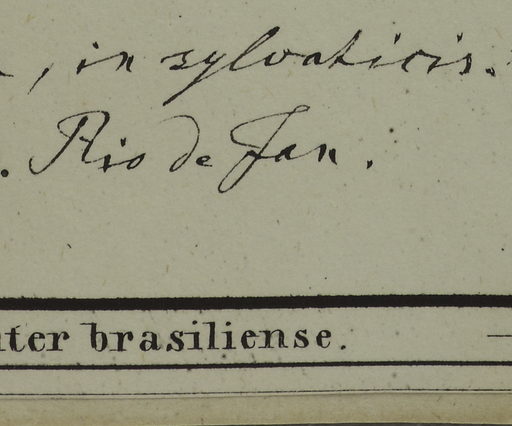 , in sylvaticis.
. Rio de Jan.
iter brasiliense.